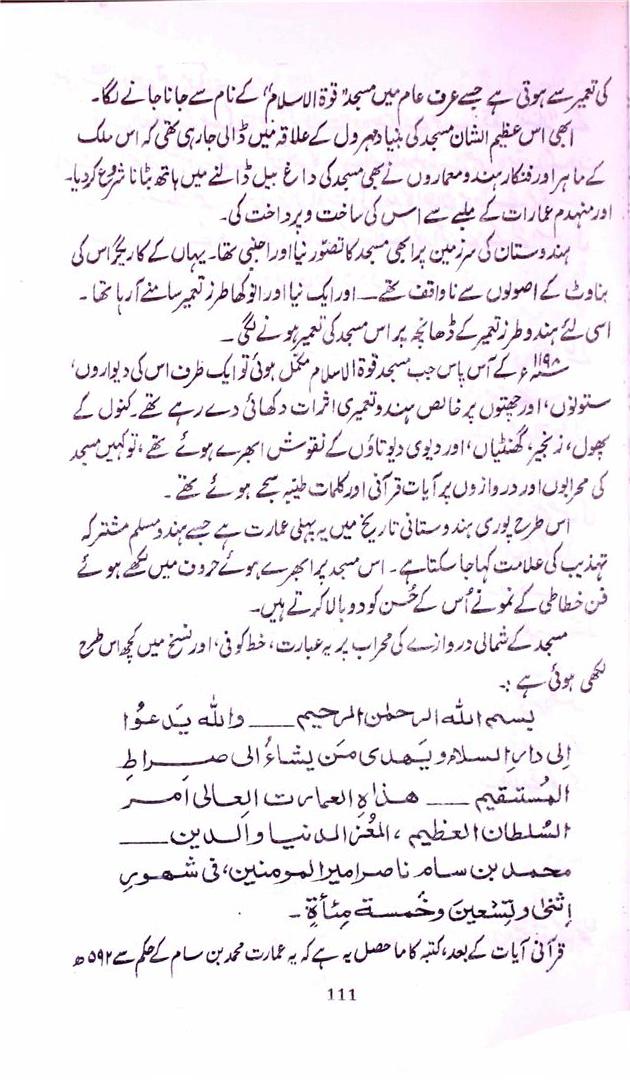 کی تعمیر سے ہوتی ہے جسے عرف عام میں مسجد "قوۃ الاسلام" کے نام سے جانا جانے لگا۔
ابھی اس عظیم الشان مسجد کی بنیاد مہرول کے علاقہ میں ڈالی جا رہی تھی کہ اس ملک
کے ماہر اور فنکار ہندو معماروں نے بھی مسجد کی داغ بیل ڈالنے میں ہاتھ بٹانا شروع کر دیا۔
اور منہدم عمارات کے ملبے سے اس کی ساخت و پرداخت کی۔
ہندوستان کی سرزمین پر ابھی مسجد کا تصوّر نیا اور اجنبی تھا۔ یہاں کے کاریگر اس کی
بناوٹ کے اصولوں سے ناواقف تھے — اور ایک نیا اور انوکھا طرز تعمیر سامنے آ رہا تھا۔
اسی لئے ہندو طرز تعمیر کے ڈھانچہ پر اس مسجد کی تعمیر ہونے لگی۔
۱۱۹۸ء کے آس پاس جب مسجد قوۃ الاسلام مکمّل ہوئی تو ایک طرف اس کی دیواروں،
ستونوں، اور چھتوں پر خالص ہندو تعمیری اثرات دکھائی دے رہے تھے۔ کنول کے
پھول، زنجیر، گھنٹیاں، اور دیوی دیوتاؤں کے نقوش ابھرے ہوئے تھے، تو کہیں مسجد
کی محرابوں اور دروازوں پر آیات قرآنی اور کلمات طیبہ سجے ہوئے تھے۔
اس طرح پوری ہندوستانی تاریخ میں یہ پہلی عمارت ہے جسے ہندو مسلم مشترکہ
تہذیب کی علامت کہا جا سکتا ہے۔ اس مسجد پر ابھرے ہوئے حروف میں لکھے ہوئے
فن خطاطی کے نمونے اُس کے حُسن کو دوبالا کرتے ہیں۔
مسجد کے شمالی دروازے کی محراب پر یہ عبارت، خط کوفی، اور نسخ میں کچھ اس طرح
لکھی ہوئی ہے :۔
بسم اللہ الرحمٰن الرحیم — واللہ یَدعوُا
اِلی دارِ السلام و یَھدی مَن یشاءُ الی صراطِ
المُستقیم — ھذاہِ العمارت العالی اَمر
السُلطان العظیم ، المُعزّ الدنیا و الدین —
محمد بن سام ناصر امیر المومنین، فی شھورِ
اِثنیٰ و تِسْعینَ و خَمسة مِئأةِ ۔
قرآنی آیات کے بعد، کتبہ کا ماحصل یہ ہے کہ یہ عمارت محمد بن سام کے حکم سے ۵۹۲ھ
111